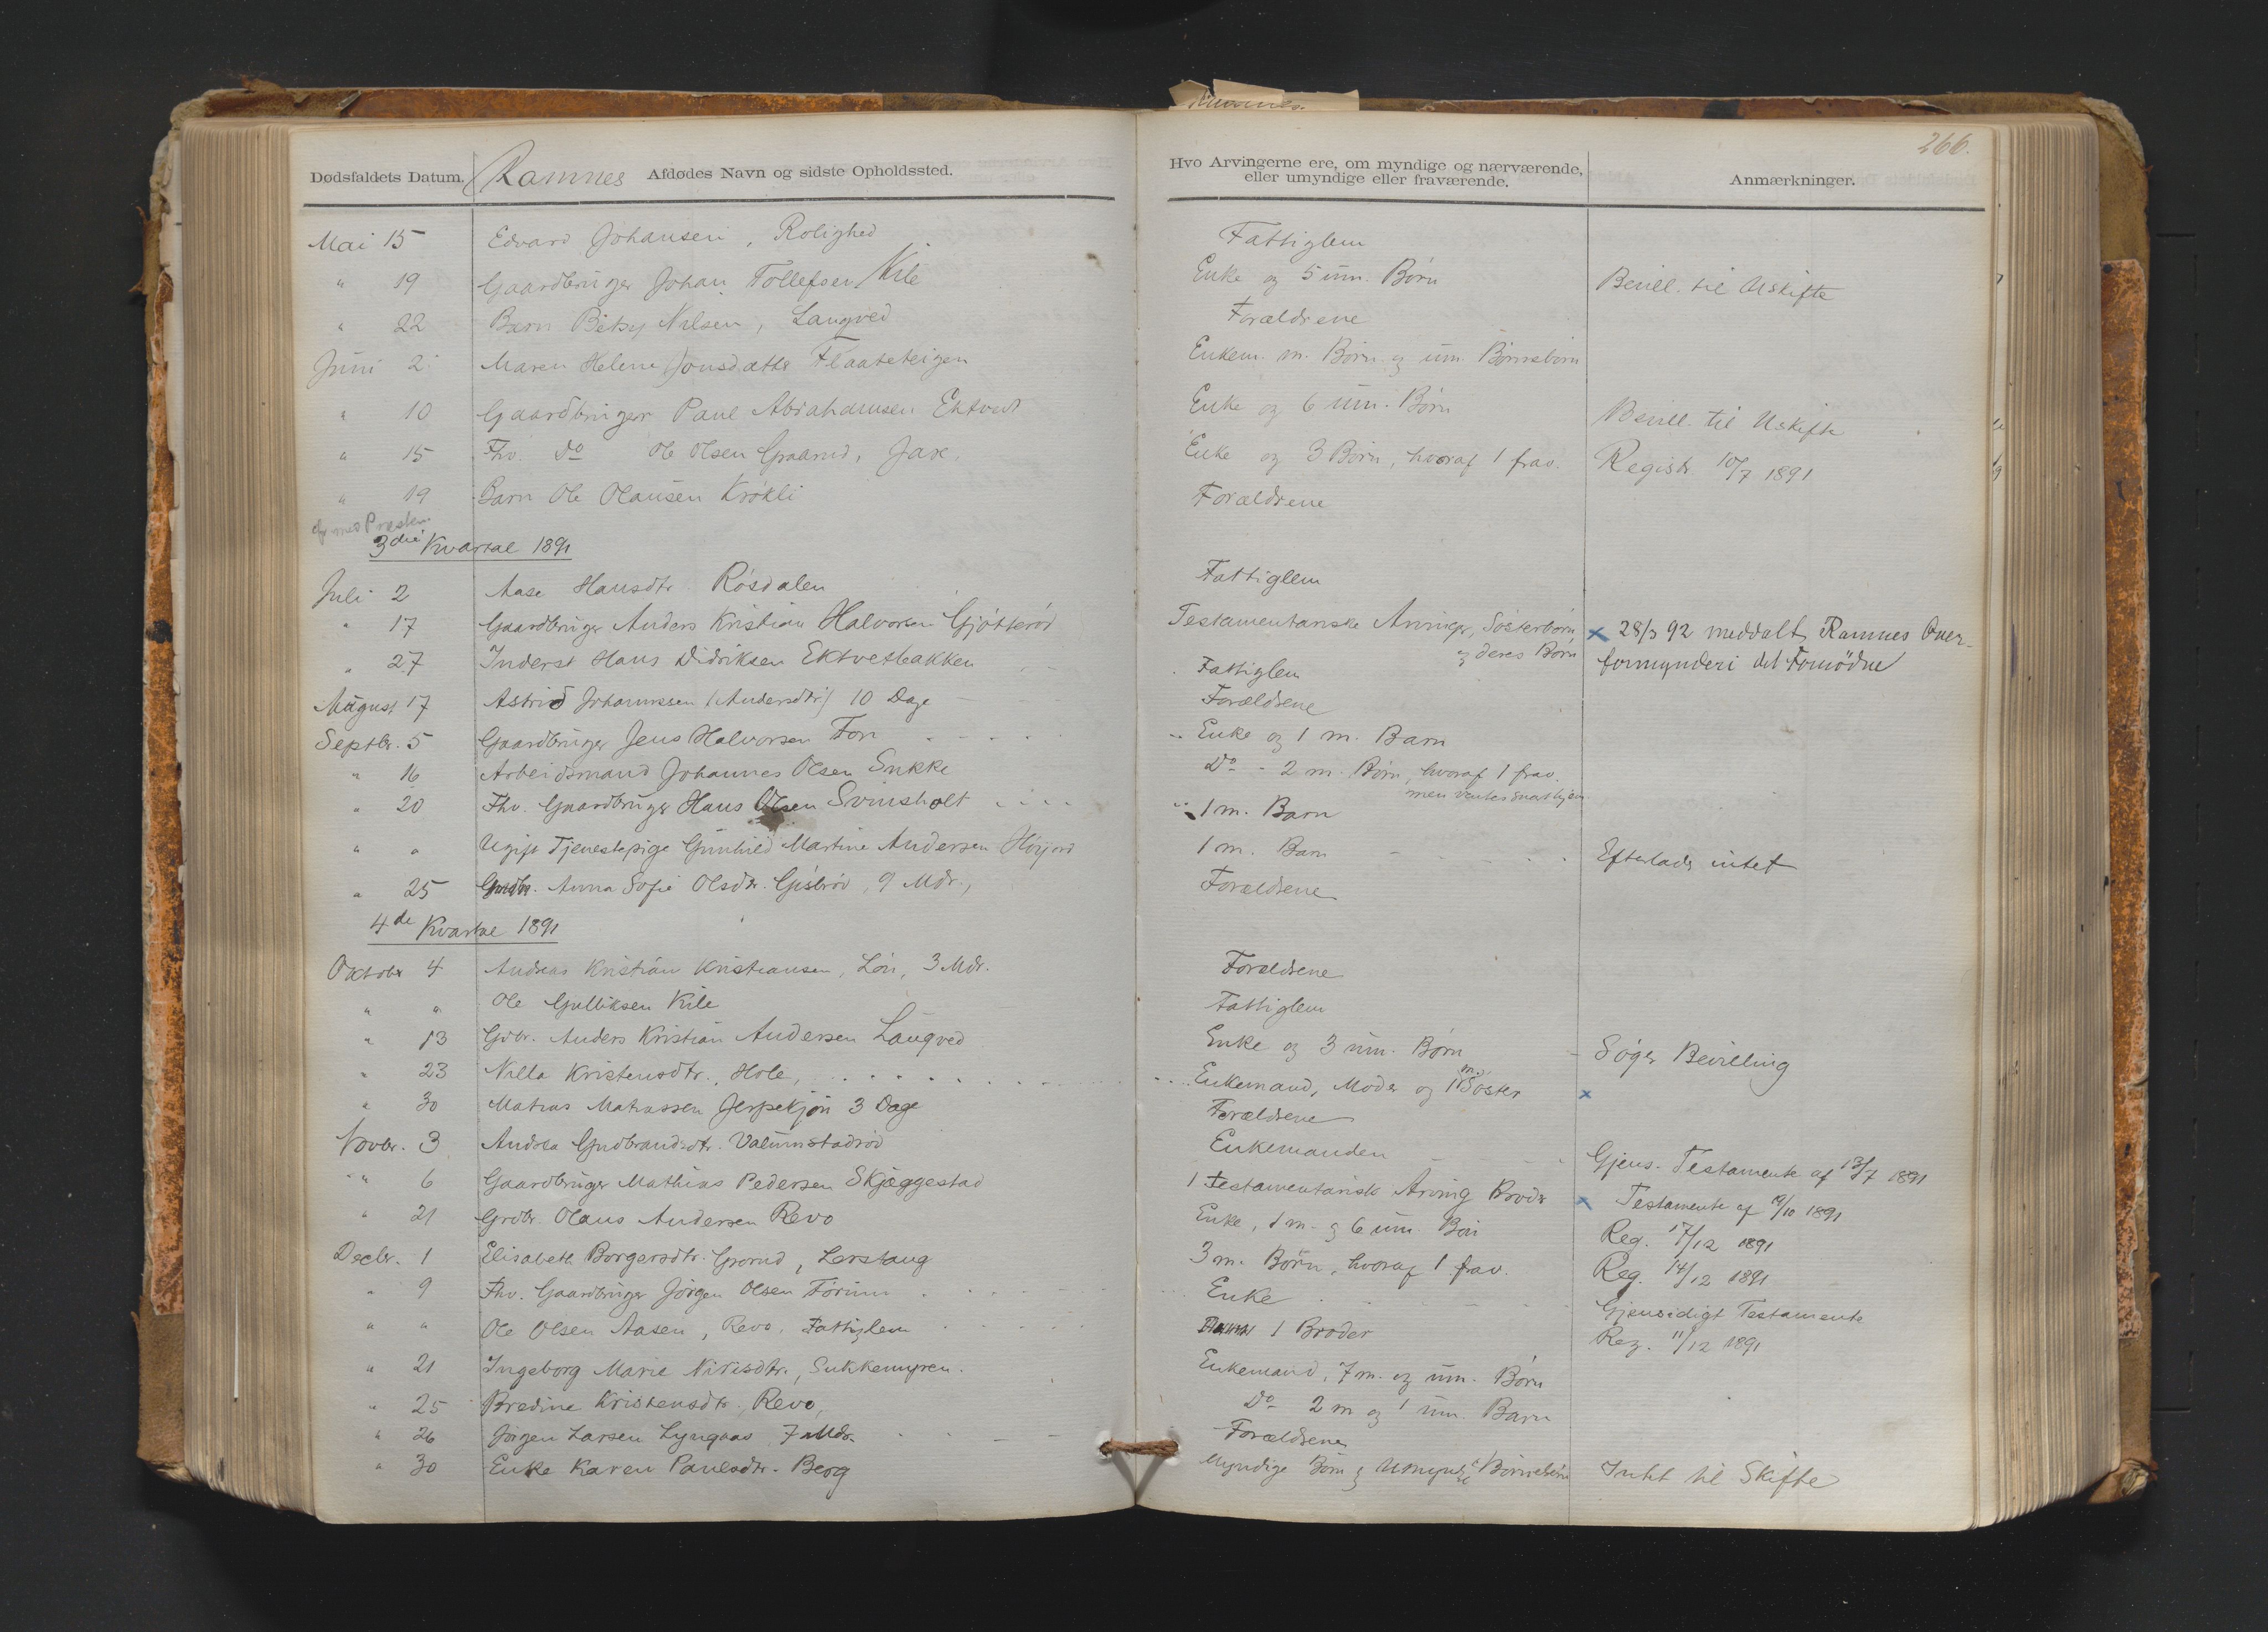 Ramnes.
266.
Dødsfaldets Datum. Ramnes Afdødes Navn og sidste Opholdssted. Hvo Arvingerne ere, om myndige og nærværende, eller umyndige eller fraværende. Anmærkninger.
Mai 15 Edvard Johansen, Rolighed Fattiglem
" 19 Gaardbruger Johan Tollefsen Kile Enke og 5 um. Børn Bevill. til Uskifte
" 22 Barn Betsy Nilsen, Langved Forældrene
Juni 2 Maren Helene Jonsdatter Flaateteigen Enkem. m. Børn og um. Børnebørn
" 10 Gaardbruger Paul Abrahamsen Ektvet Enke og 6 um. Børn Bevill. til Uskifte
" 15 Fhv. Do Ole Olsen Graarud, Jare. Enke og 3 Børn, hvoraf 1 frav. Registr. 10/7 1891
" 19 Barn Ole Olausen Krøkli Forældrene
med Presten
3die Kvartal 1891
Juli 2 Aase Hansdtr. Røsdalen Fattiglem
" 17 Gaardbruger Anders Kristian Halvorsen Gjøtterød Testamentariske Arvinger, Søsterbørn, og deres Børn x 28/3 92 meddalt Ramnes Over-
" 27 Inderst Hans Didriksen Ektvetbakken Fattiglem formynderi det Fornødne
August 17 Astrid Johannssen (Andersdtr.) 10 Dage Forældrene
Septbr. 5 Gaardbruger Jens Halvorsen Fon Enke og 1 m. Barn
" 16 Arbeidsmand Johannes Olsen Sukke Do - 2 m. Børn, hvoraf 1 frav.
men ventes snart hjem
" 20 Fhv. Gaardbruger Hans Olsen Svinsholt 1 m. Barn
" " Ugift Tjenestepige Gunhild Martine Andersen Høijord 1 m. Barn Efterlader intet
" 25 Anna Sofie Olsdtr. 9 Mdr., Forældrene
4de Kvartal 1891
Oktober 4 Andreas Kristian Kristiansen, Lön, 3 Mdr. Forældrene
" " Ole Gulliksen Kile Fattiglem
" 13 Gdbr. Anders Kristian Andersen Langved Enke og 3 um. Børn - Søger Bevilling
" 23 Nilla Kristensdtr., Hole, Enkemand, Moder og 1 m. Søster x
" 30 Matias Matiassen Jerpekjøn 3 Dage Forældrene
Novbr. 3 Andrea Gudbrandsdtr. Valumstadrød Enkemanden Gjens. Testamente af 13/7 1891
" 6 Gaardbruger Mathias Pedersen Skjæggestad 1 testamentarisk Arving Broder x Testamente af 19/10 1891
" 21 Grdbr. Olaus Andersen Revo Enke, 1 m. og 6 um. Børn Reg. 17/12 1891
Decbr. 1 Elisabeth Borgersdtr. Grorud, Lerstang 3 m. Børn, hvoraf 1 frav. Reg. 14/12 1891
" 9 Fhv. Gaardbruger Jørgen Olsen Førum Enke Gjensidigt Testamente
" " Ole Olsen Aasen, Revo. Fattiglem 1 Broder Reg. 11/12 1891
" 21 Ingeborg Marie Nirisdtr., Sukkemyren. Enkemand, 7 m. og um. Børn
" 25 Bredine Kristensdtr., Revo, Do 2 m og 1 um. Barn
" 26 Jørgen Larsen Lyngaas 7 Mdr. Forældrene
" 30 Enke Karen Paulsdtr. Berg Myndige Børn og Umyndige Børnebørn Intet til Skifte